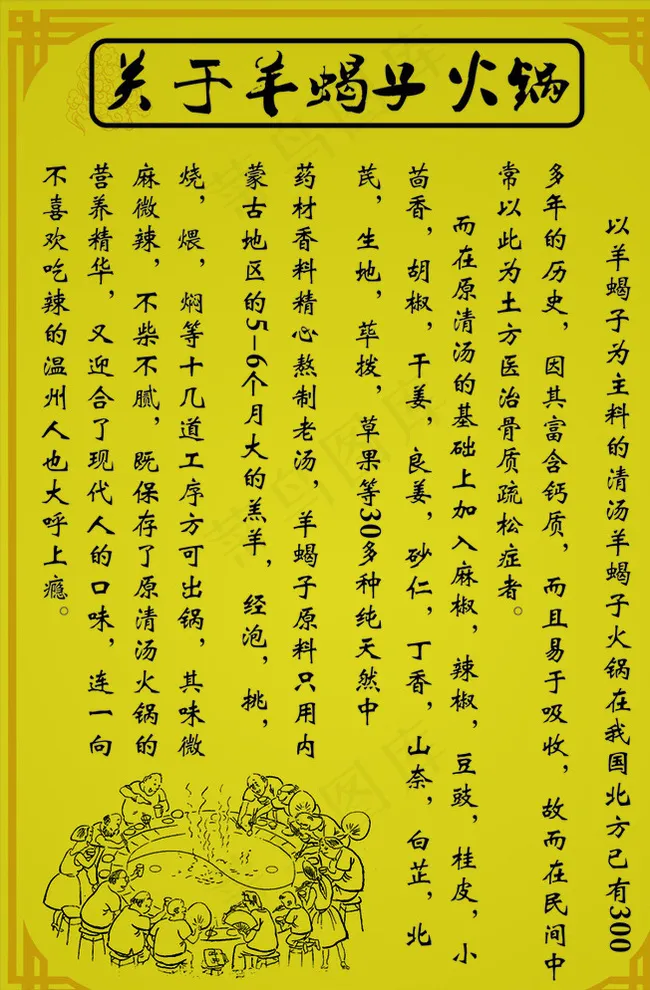 关于羊蝎子火锅
以羊蝎子为主料的清汤羊蝎子火锅在我国北方已有300
多年的历史，因其富含钙质，而且易于吸收，故而在民间中
常以此为土方医治骨质疏松症者。
而在原清汤的基础上加入麻椒，辣椒，豆豉，桂皮，小
茴香，胡椒，干姜，良姜，砂仁，丁香，山奈，白芷，北
芪，生地，荜拨，草果等30多种纯天然中
药材香料精心熬制老汤，羊蝎子原料只用内
蒙古地区的5-6个月大的羔羊，经泡，挑，
烧，煨，焖等十几道工序方可出锅，其味微
麻微辣，不柴不腻，既保存了原清汤火锅的
营养精华，又迎合了现代人的口味，连一向
不喜欢吃辣的温州人也大呼上瘾。